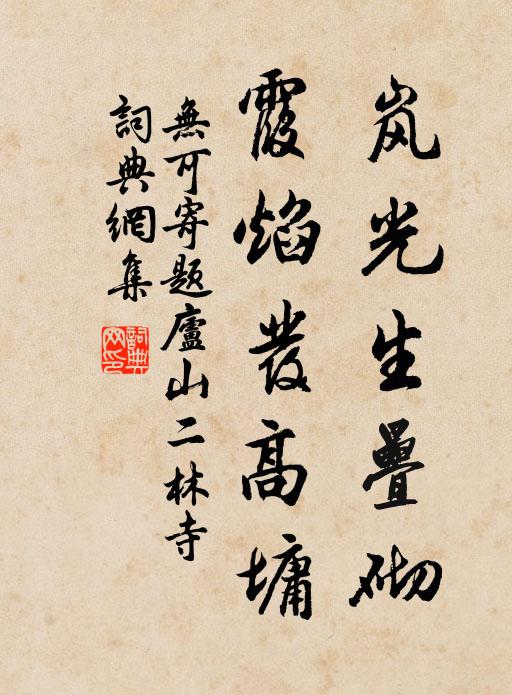 岚光生疊砌
霞焰發高墉
無可寄题廬山二林寺
詞典網集
詞典网印